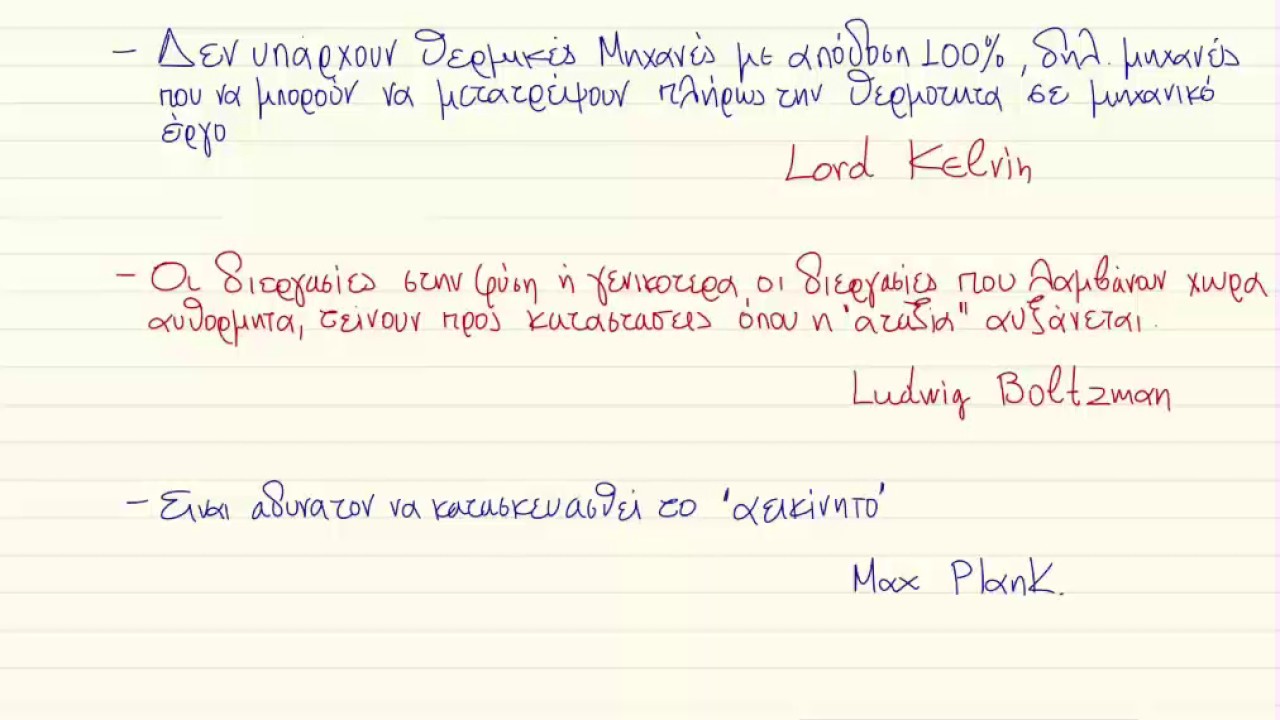 - Δεν υπάρχουν θερμικές Μηχανές με απόδοση 100%, δηλ. μηχανές
που να μπορούν να μετατρέψουν πλήρως την θερμότητα σε μηχανικό
έργο
Lord Kelvin
- Οι διεργασίες στην φύση ή γενικοτερα, οι διεργασίες που λαμβάνουν χωρα
αυθορμητα, τείνουν προς καταστασεις όπου η "αταξία" αυξάνεται.
Ludwig Boltzman
- Ειναι αδυνατον να κατασκευασθεί το 'αεικίνητο'
Max Plank.